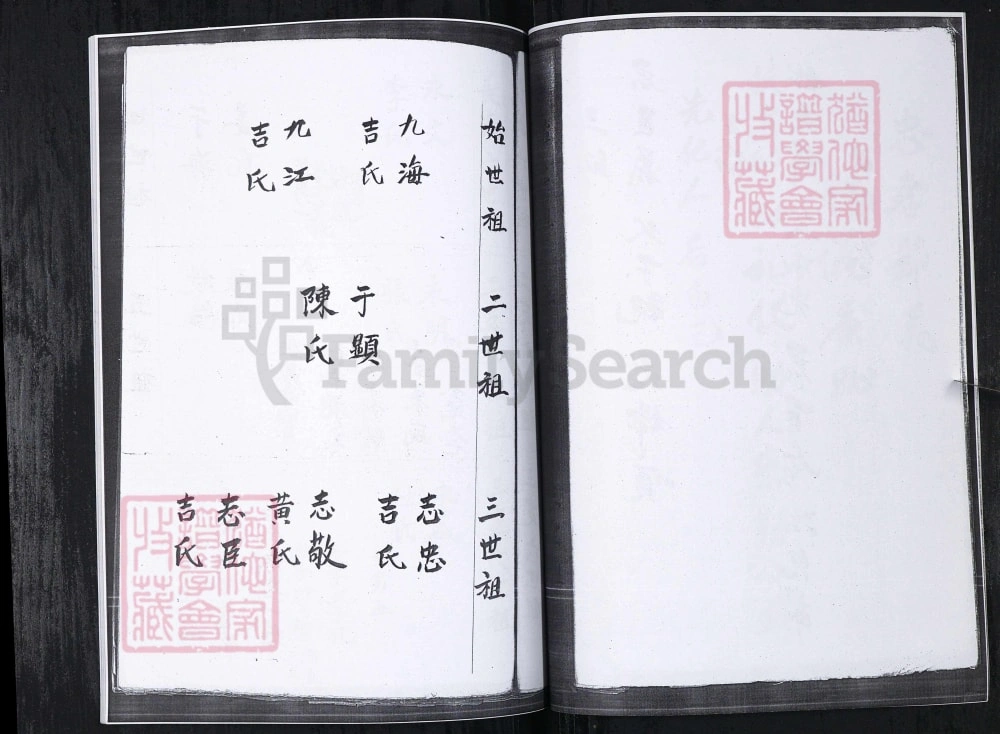 猶他家
譜學會
收藏
始世祖
九海
吉氏
九江
吉氏
二世祖
于顯
陳氏
三世祖
志忠
吉氏
志敬
黃氏
志臣
吉氏
猶他家
譜學會
收藏
FamilySearch